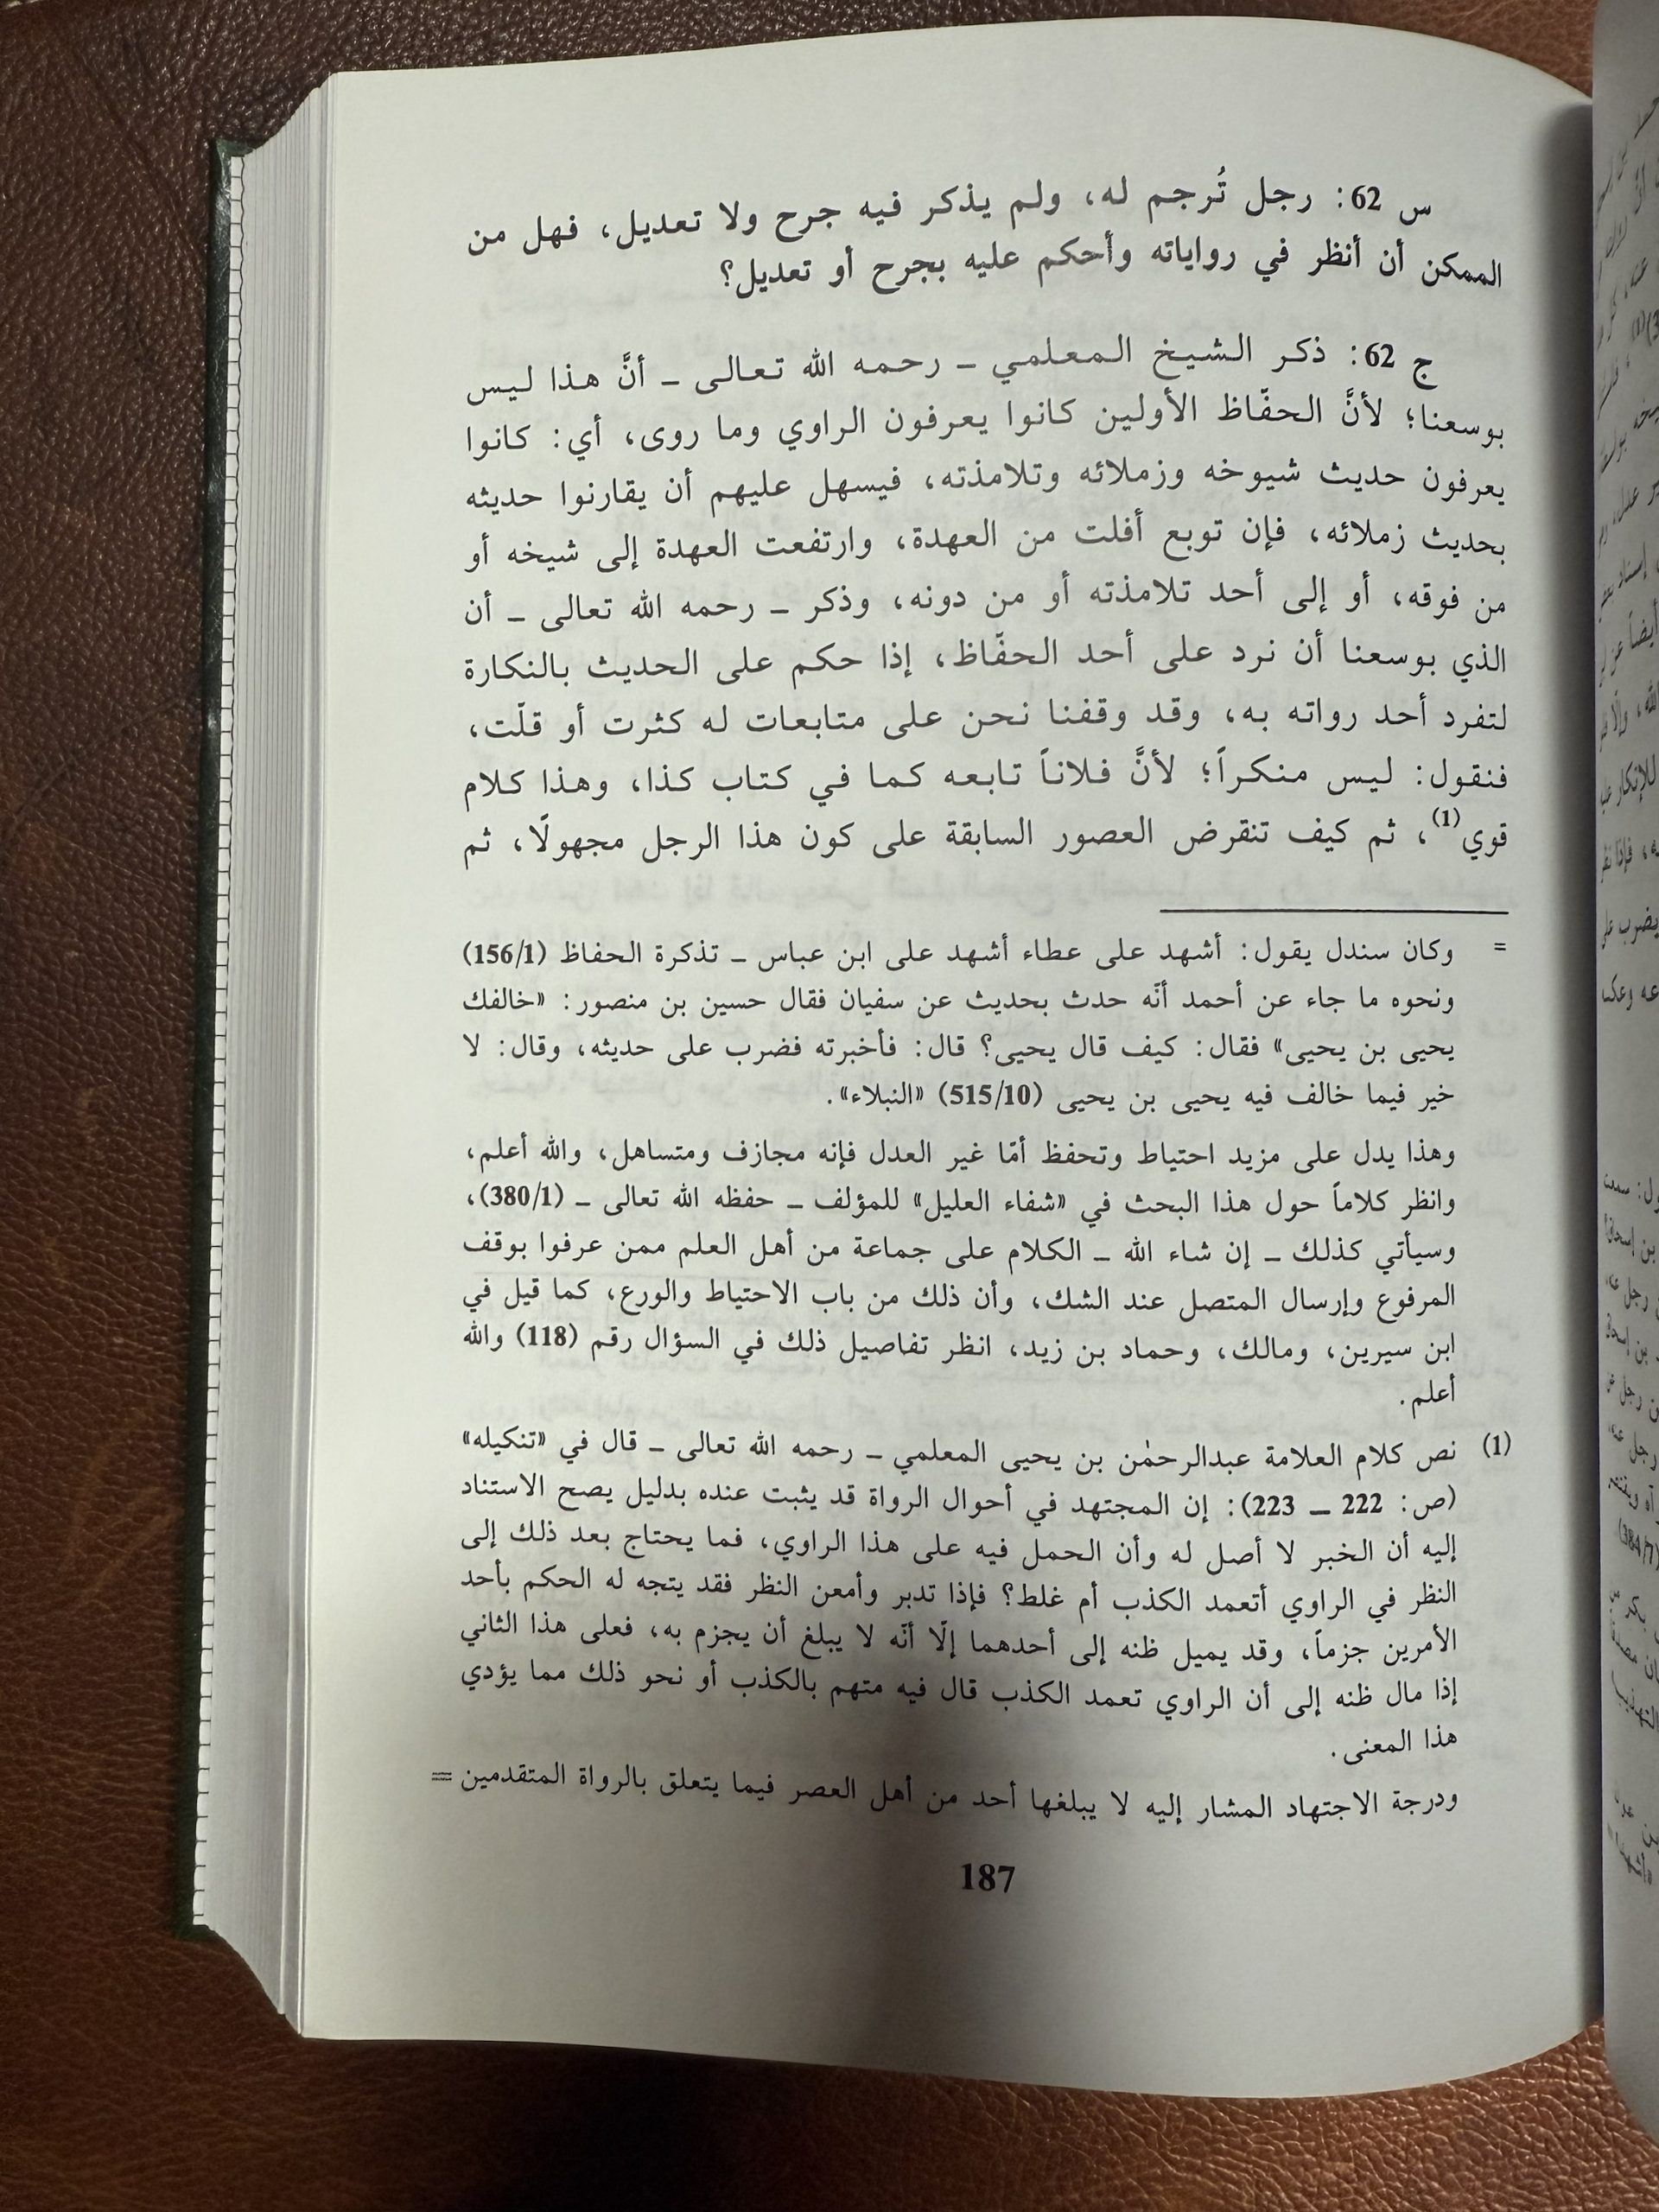 س 62: رجل تُرجم له، ولم يذكر فيه جرح ولا تعديل، فهل من
الممكن أن أنظر في رواياته وأحكم عليه بجرح أو تعديل؟
ج 62: ذكر الشيخ المعلمي ـ رحمه الله تعالى ـ أنَّ هذا ليس
بوسعنا؛ لأنَّ الحفّاظ الأولين كانوا يعرفون الراوي وما روى، أي: كانوا
يعرفون حديث شيوخه وزملائه وتلامذته، فيسهل عليهم أن يقارنوا حديثه
بحديث زملائه، فإن توبع أفلت من العهدة، وارتفعت العهدة إلى شيخه أو
من فوقه، أو إلى أحد تلامذته أو من دونه، وذكر ـ رحمه الله تعالى ـ أن
الذي بوسعنا أن نرد على أحد الحفّاظ، إذا حكم على الحديث بالنكارة
لتفرد أحد رواته به، وقد وقفنا نحن على متابعات له كثرت أو قلّت،
فنقول: ليس منكراً؛ لأنَّ فلاناً تابعه كما في كتاب كذا، وهذا كلام
قوي(1)، ثم كيف تنقرض العصور السابقة على كون هذا الرجل مجهولًا، ثم
= وكان سندل يقول: أشهد على عطاء أشهد على ابن عباس ـ تذكرة الحفاظ (156/1)
ونحوه ما جاء عن أحمد أنّه حدث بحديث عن سفيان فقال حسين بن منصور: «خالفك
يحيى بن يحيى» فقال: كيف قال يحيى؟ قال: فأخبرته فضرب على حديثه، وقال: لا
خير فيما خالف فيه يحيى بن يحيى (515/10) «النبلاء».
وهذا يدل على مزيد احتياط وتحفظ أمّا غير العدل فإنه مجازف ومتساهل، والله أعلم،
وانظر كلاماً حول هذا البحث في «شفاء العليل» للمؤلف ـ حفظه الله تعالى ـ (380/1)،
وسيأتي كذلك ـ إن شاء الله ـ الكلام على جماعة من أهل العلم ممن عرفوا بوقف
المرفوع وإرسال المتصل عند الشك، وأن ذلك من باب الاحتياط والورع، كما قيل في
ابن سيرين، ومالك، وحماد بن زيد، انظر تفاصيل ذلك في السؤال رقم (118) والله
أعلم.
(1) نص كلام العلامة عبدالرحمٰن بن يحيى المعلمي ـ رحمه الله تعالى ـ قال في «تنكيله»
(ص: 222 ـ 223): إن المجتهد في أحوال الرواة قد يثبت عنده بدليل يصح الاستناد
إليه أن الخبر لا أصل له وأن الحمل فيه على هذا الراوي، فما يحتاج بعد ذلك إلى
النظر في الراوي أتعمد الكذب أم غلط؟ فإذا تدبر وأمعن النظر فقد يتجه له الحكم بأحد
الأمرين جزماً، وقد يميل ظنه إلى أحدهما إلّا أنّه لا يبلغ أن يجزم به، فعلى هذا الثاني
إذا مال ظنه إلى أن الراوي تعمد الكذب قال فيه متهم بالكذب أو نحو ذلك مما يؤدي
هذا المعنى.
ودرجة الاجتهاد المشار إليه لا يبلغها أحد من أهل العصر فيما يتعلق بالرواة المتقدمين =
187